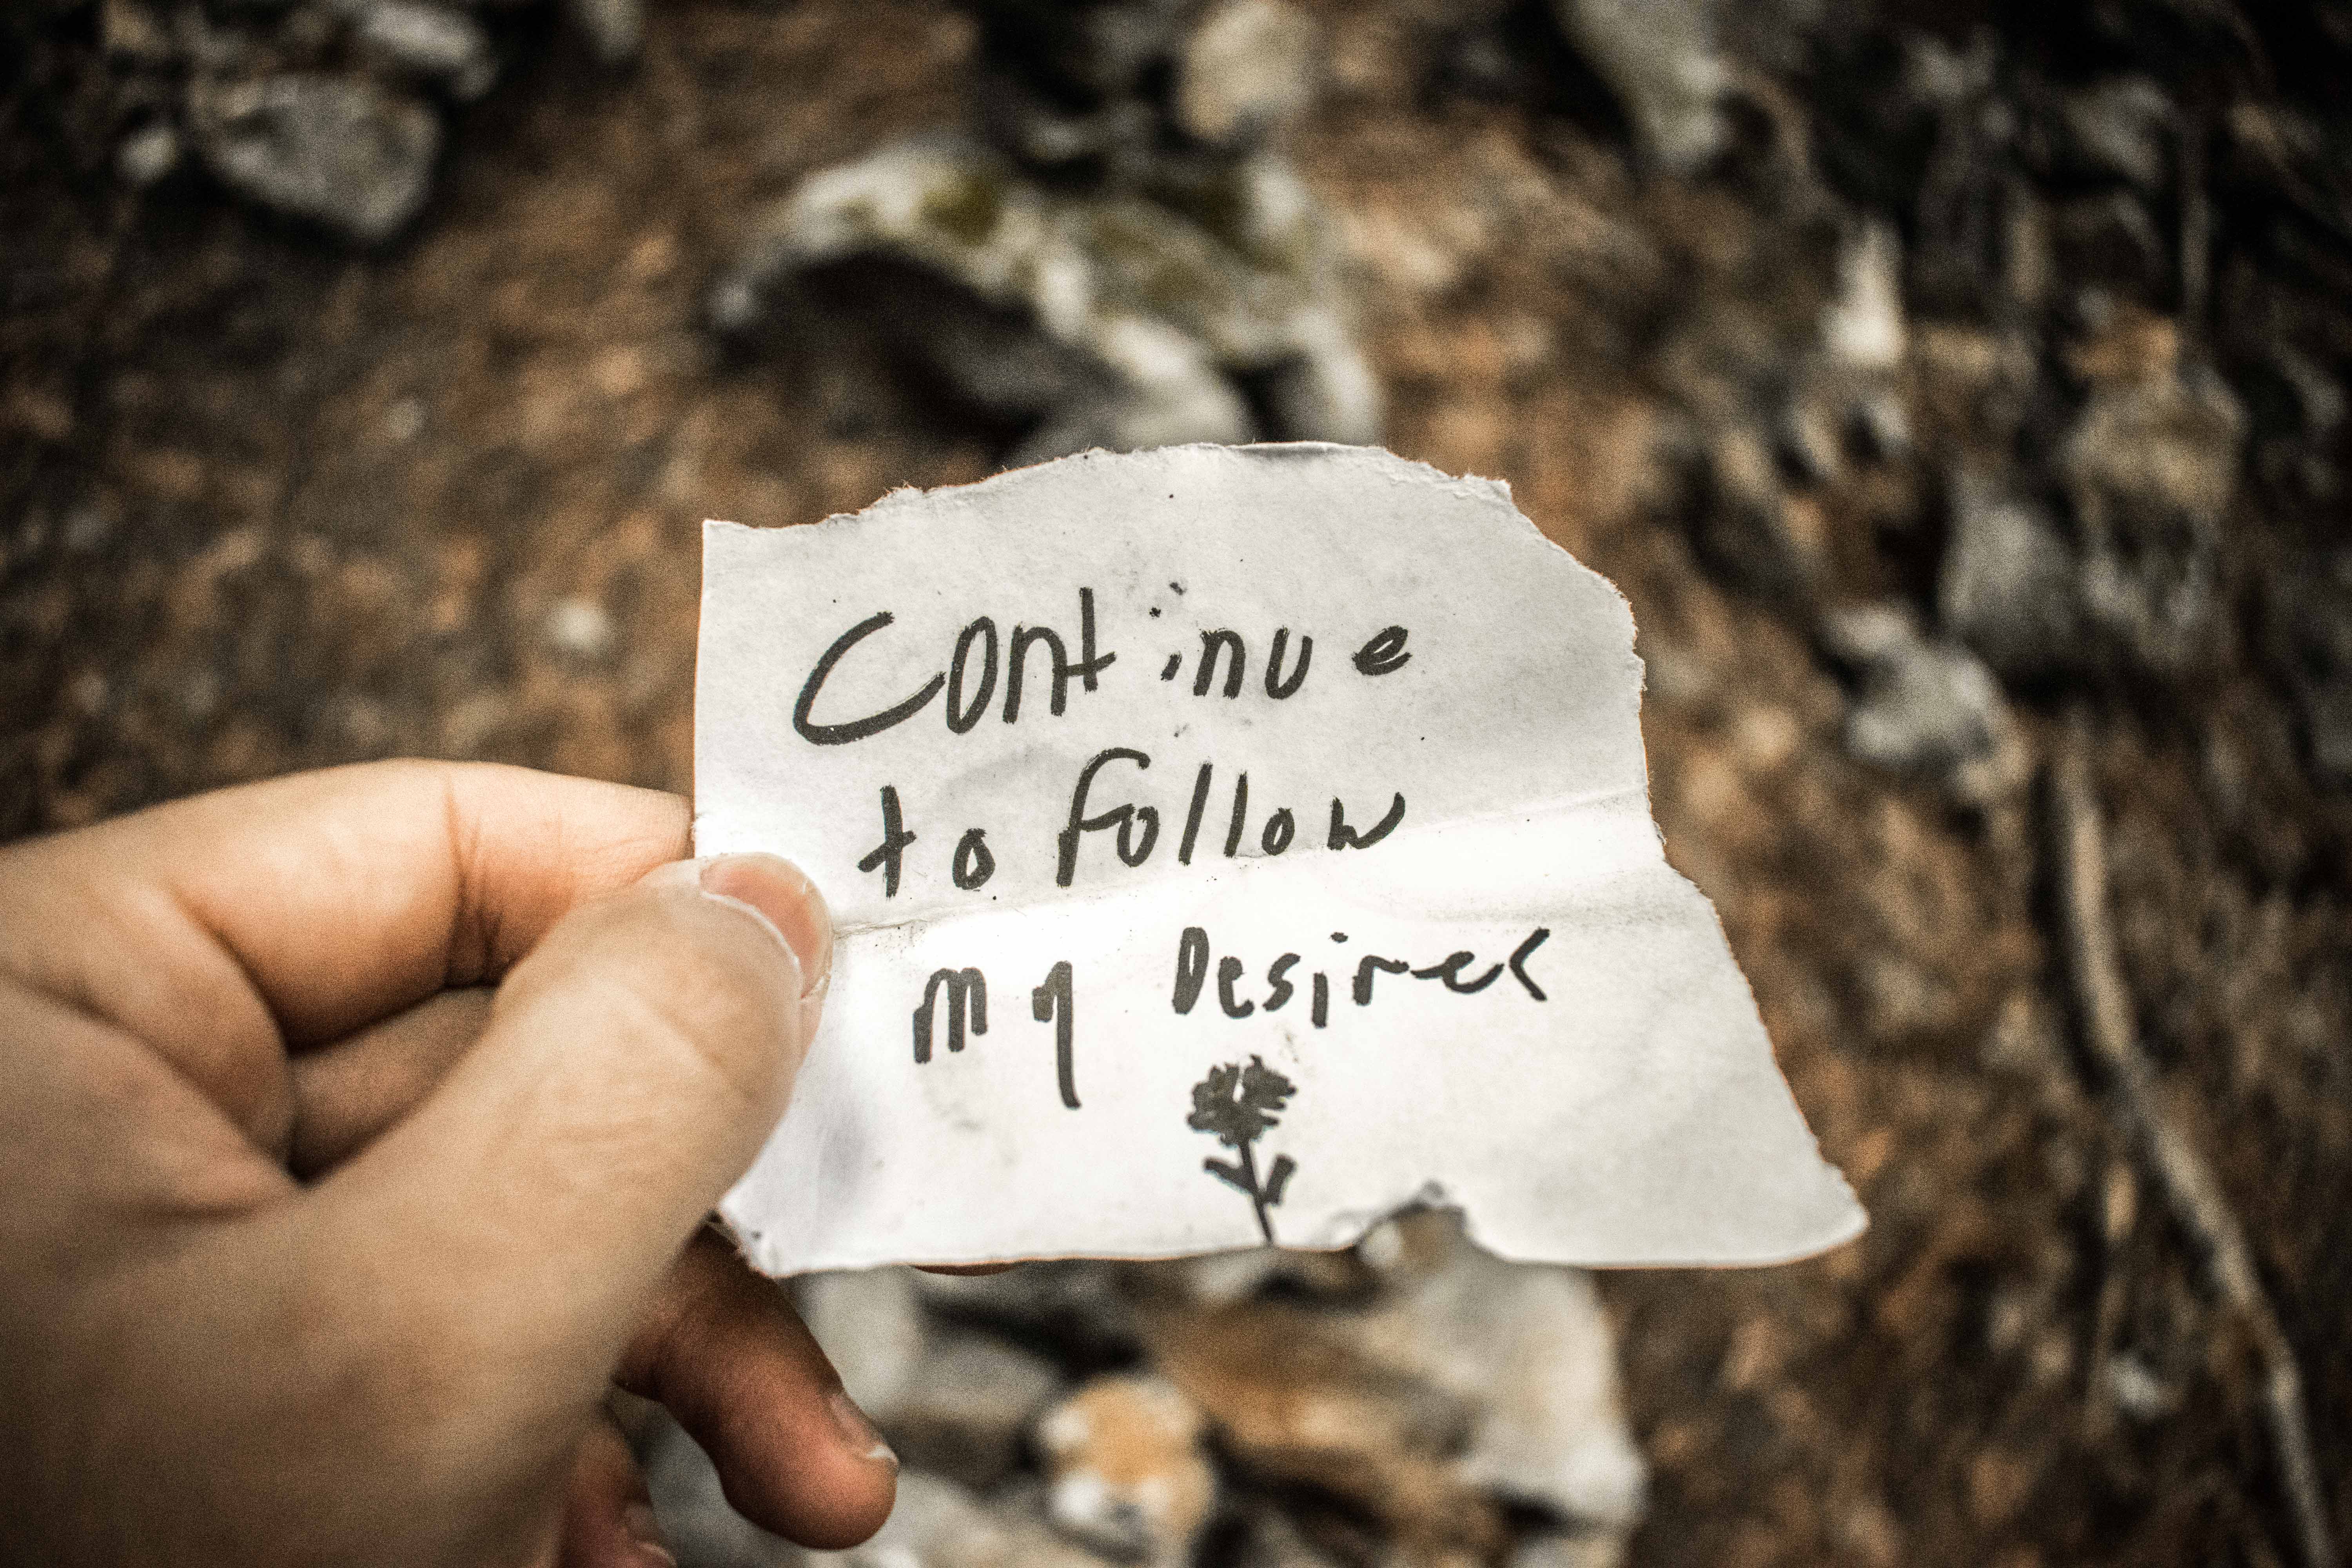 Continue
to follow
my Desires